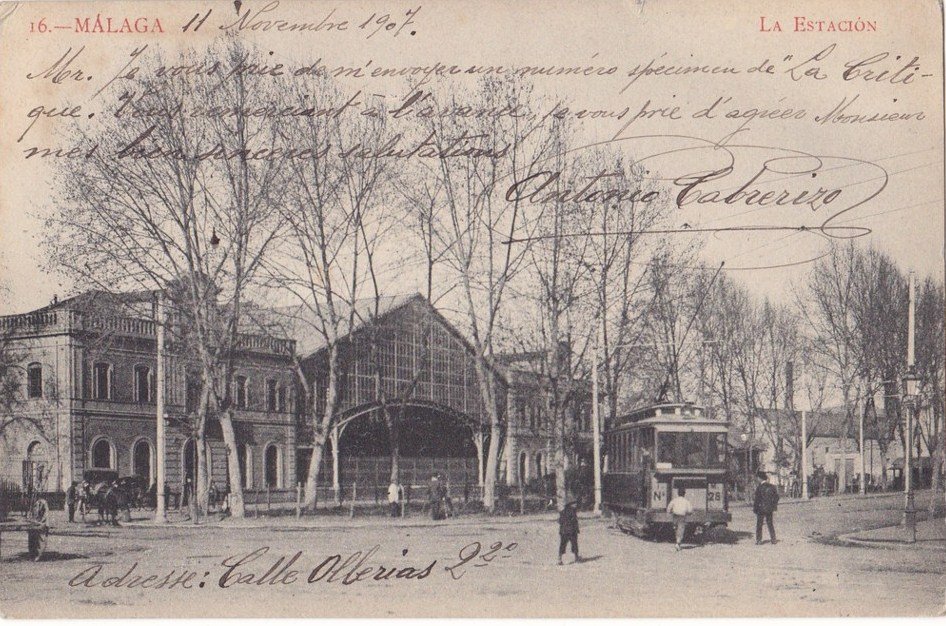 16.—MÁLAGA 11 Novembre 1907. LA ESTACIÓN
Mr. Je vous prie de m'envoyer un numéro spécimen de "La Criti-
que. Vous remerciant à l'avance, je vous prie d'agréer Monsieur
mes bien sincères salutations
Antonio Cabrerizo
Nº 28
Adresse: Calle Ollerias 22º